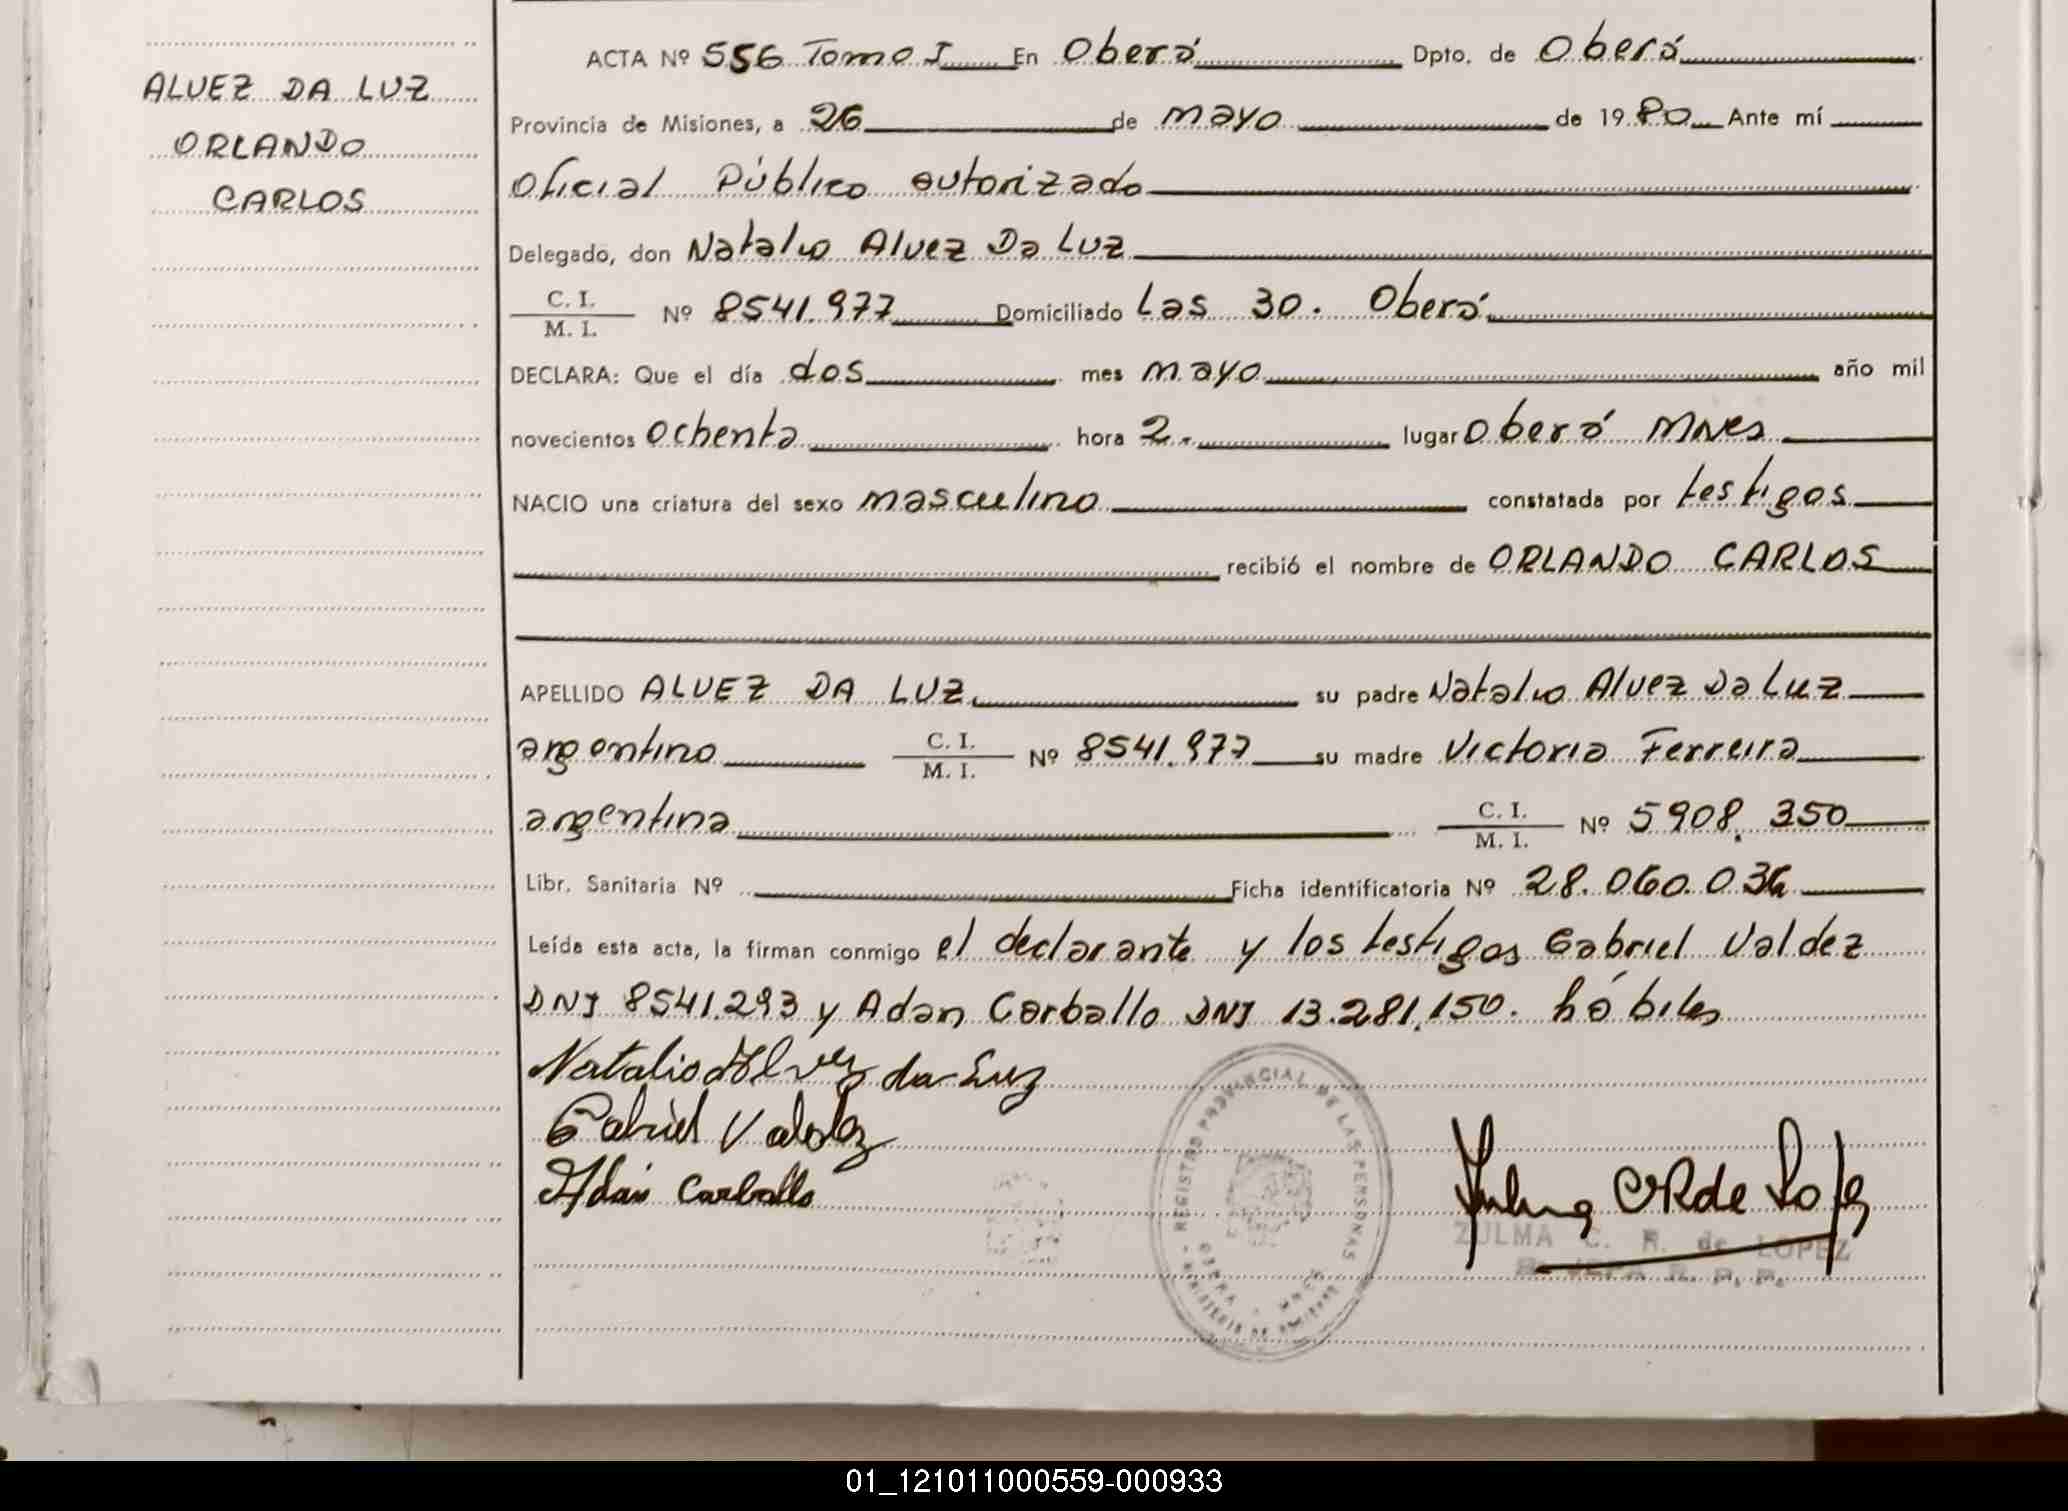 ALVEZ DA LUZ
ORLANDO
CARLOS
ACTA Nº 556 Tomo I En Oberá Dpto. de Oberá
Provincia de Misiones, a 26 de mayo de 1980 Ante mí
Oficial Público autorizado
Delegado, don Natalio Alvez Da Luz
C. I.
M. I. Nº 8541.977 Domiciliado Las 30. Oberá
DECLARA: Que el día dos mes mayo año mil
novecientos ochenta hora 2.- lugar Oberá Mnes
NACIO una criatura del sexo masculino constatada por testigos
recibió el nombre de ORLANDO CARLOS
APELLIDO ALVEZ DA LUZ su padre Natalio Alvez Da Luz
argentino C. I. M. I. Nº 8541.977 su madre Victoria Ferreira
argentina C. I. M. I. Nº 5908.350
Libr. Sanitaria Nº Ficha identificatoria Nº 28.060.036
Leída esta acta, la firman conmigo el declarante y los testigos Gabriel Valdez
DNI 8541.293 y Adan Carballo DNI 13.281.150. hábiles
Natalio Alvez da Luz
Gabriel Valdez
Adán Carballo
REGISTRO PROVINCIAL DE LAS PERSONAS
OBERA - MNES
MINISTERIO DE GOBIERNO
Zulma C R de Lopez
ZULMA C. R. de LOPEZ
01_121011000559-000933